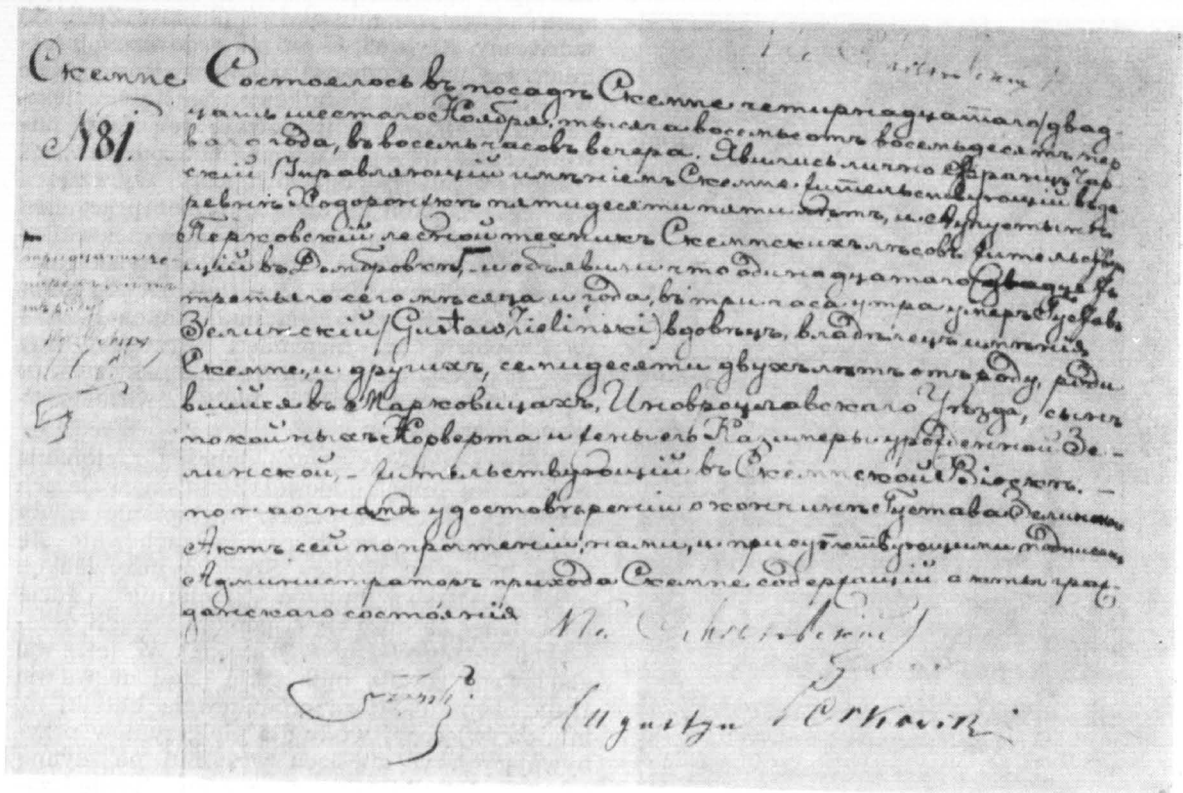 Скемпе
№81
Состоялось въ посадѣ Скемпе четирнадцатаго/двад
цать шестаго Ноября, тысяча восемьсотъ восемьдесятъ пер
ваго года, въ восемь часовъ вечера. Явились лично Францъ Чар
скій Управляющій имѣніемъ Скемпе жительствующій въ де
ревнѣ пятидесяти пяти лѣтъ, и Августынъ
Перковскій лесной техникъ Скемпскихъ лѣсовъ жительствую
щій въ Домбровкѣ и объявили что одинадцатаго/двадцать
третьяго сего мѣсяца и года, въ три часа утра умеръ Густавъ
Зелинскій (Gustaw Zieliński) вдовецъ, владѣлецъ имѣнія
Скемпе и другихъ, семидесяти двухъ лѣтъ отъ роду, роди
вшійся въ Марковицахъ, Иновроцлавскаго Уѣзда, сынъ
покойныхъ Норверта и жены его Казимеры урожденной Зе-
линской,- жительствующій въ Скемпской Віоскѣ.-
по наочномъ удостовѣреніи о кончинѣ Густава Зелинскаго
Актъ сей по прочтеніи, нами, и присутствующими подписанъ
Администраторъ прихода Скемпе содержащій акты граж-
данскаго состоянія
Augustyn Perkowski